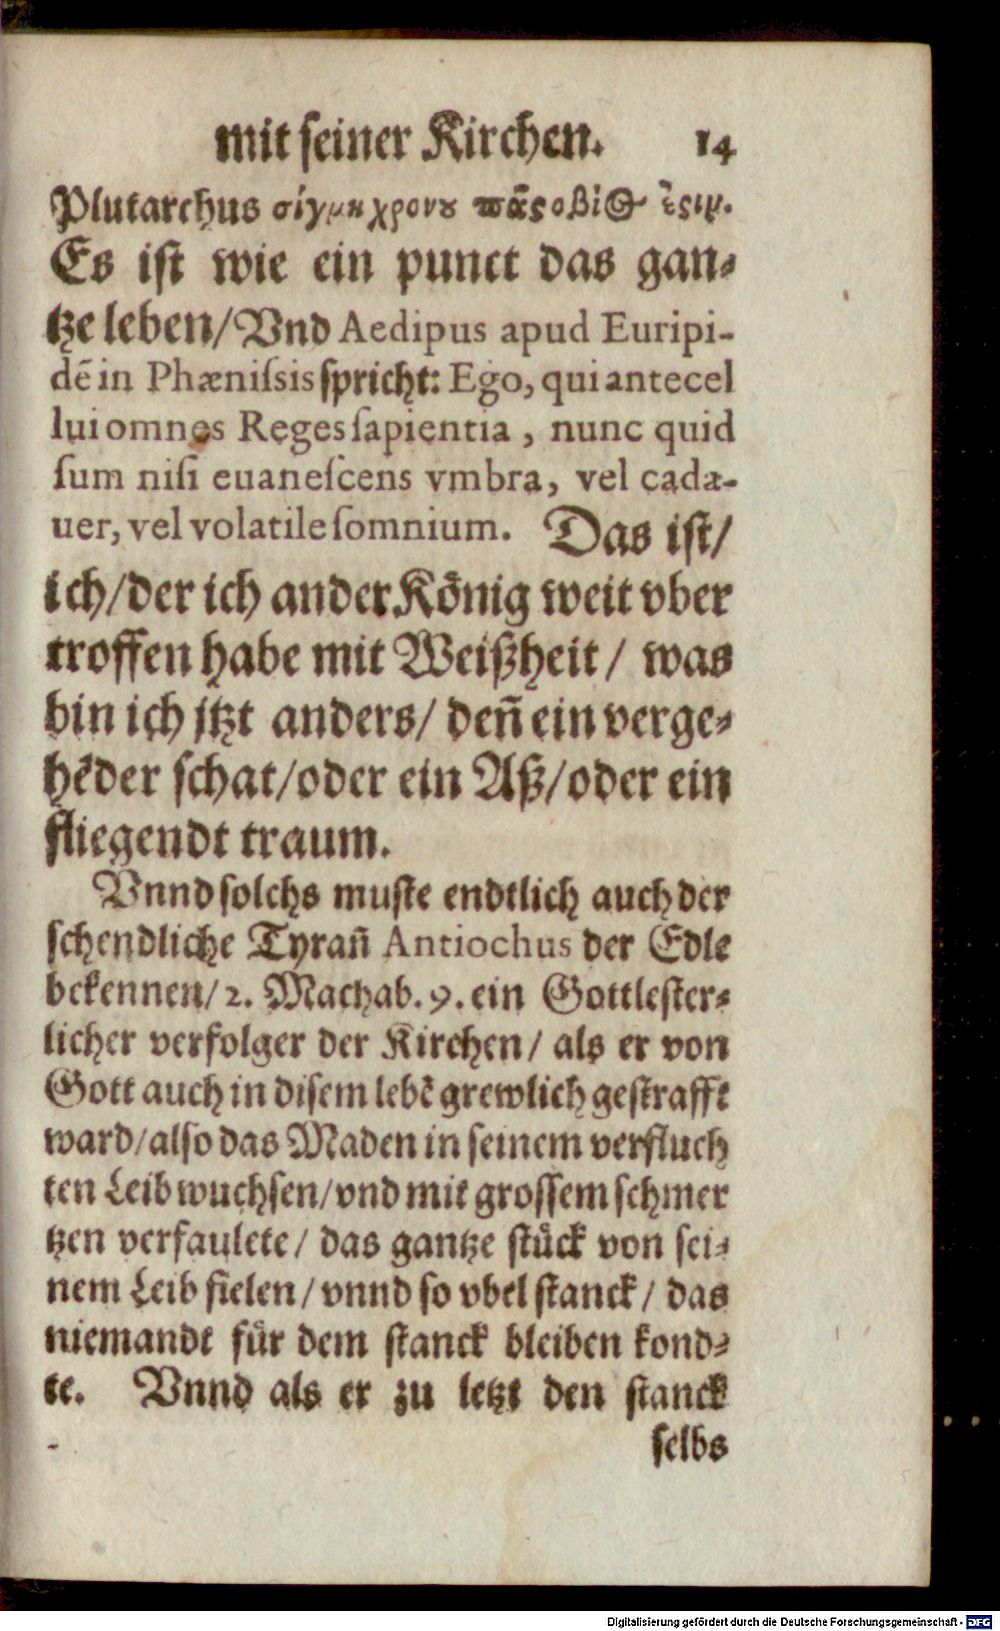 mit seiner Kirchen. 14
Plutarchus σίγμη χρονȣ πᾶς ο βίος ἐςιν.
Es ist wie ein punct das gan-
tze leben/ Vnd Aedipus apud Euripi-
dē in Phænissis spricht: Ego, qui antecel
lui omnes Reges sapientia, nunc quid
sum nisi euanescens vmbra, vel cada-
uer, vel volatile somnium. Das ist/
ich/ der ich ander Koͤnig weit vber
troffen habe mit Weißheit/ was
bin ich jtzt anders/ den̄ ein verge-
hēder schat/ oder ein Aß/ oder ein
fliegendt traum.
Vnnd solchs muste endtlich auch der
schendliche Tyran̄ Antiochus der Edle
bekennen/ 2. Machab. 9. ein Gottlester-
licher verfolger der Kirchen/ als er von
Gott auch in disem lebē grewlich gestrafft
ward/ also das Maden in seinem verfluch
ten Leib wuchsen/ vnd mit grossem schmer
tzen verfaulete/ das gantze stuͤck von sei-
nem Leib fielen/ vnnd so vbel stanck/ das
niemandt fuͤr dem stanck bleiben kond-
te. Vnnd als er zu letzt den stanck
selbs
Digitalisierung gefördert durch die Deutsche Forschungsgemeinschaft - DFG